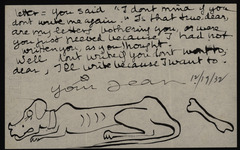 letter – you said "I dont mind if you
dont write me again." Is that true, dear,
are my letters bothering you, or were
you just peeved because I had not
written you, as you thought.
Well dont write if you dont want to
dear, I'll write because I want to –
Your Jean
12/19/32